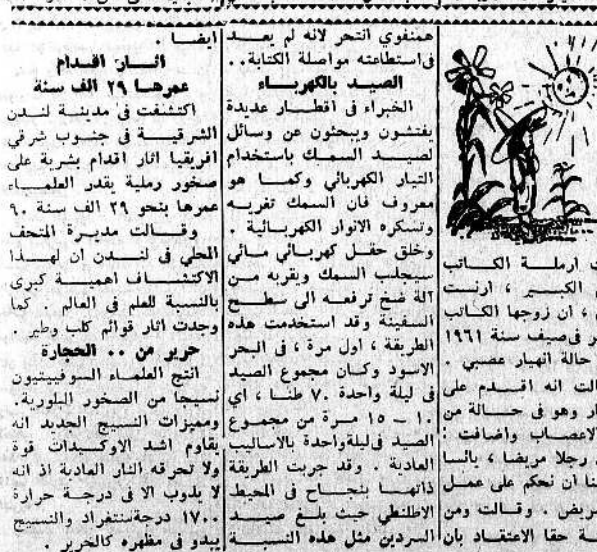 ت ارملة الكاتب
الكبير ، ارنست
، ان زوجها الكاتب
ر فى صيف سنة ١٩٦١
حالة انهيار عصبي .
الت انه اقدم على
ار وهو فى حالة من
الاعصاب واضافت :
رجلا مريضا ، بائسا
نا ان نحكم على عمل
مريض . وقالت ومن
ة حقا الاعتقاد بان
همنفوي انتحر لانه لم يعد
فى استطاعته مواصلة الكتابة ..
الصيد بالكهرباء
الخبراء فى اقطار عديدة
يفتشون ويبحثون عن وسائل
لصيد السمك باستخدام
التيار الكهربائي وكما هو
معروف فان السمك تغريه
وتسكره الانوار الكهربائية .
وخلق حقل كهربائي مائي
سيجلب السمك ويقربه من
آلة ضخ ترفعه الى سطح
السفينة وقد استخدمت هذه
الطريقة ، اول مرة ، فى البحر
الاسود وكان مجموع الصيد
فى ليلة واحدة ٧٠ طنا ، اي
١٠ - ١٥ مرة من مجموع
الصيد فى ليلة واحدة بالاساليب
العادية . وقد جربت الطريقة
ذاتها بنجاح فى المحيط
الاطلنطي حيث بلغ صيد
السردين مثل هذه النسبة
ايضا .
اثار اقدام
عمرها ٢٩ الف سنة
اكتشفت فى مدينة لندن
الشرقية فى جنوب شرقي
افريقيا اثار اقدام بشرية على
صخور رملية يقدر العلماء
عمرها بنحو ٢٩ الف سنة ٩٠
وقالت مديرة المتحف
المحلي فى لندن ان لهذا
الاكتشاف اهمية كبرى
بالنسبة للعلم فى العالم . كما
وجدت اثار قوائم كلب وطير .
حرير من .. الحجارة
انتج العلماء السوفييتيون
نسيجا من الصخور البلورية .
ومميزات النسيج الجديد انه
يقاوم اشد الاوكسيدات قوة
ولا تحرقه النار العادية اذ انه
لا يذوب الا فى درجة حرارة
١٧٠٠ درجة سنتغراد والنسيج
يبدو فى مظهره كالحرير .